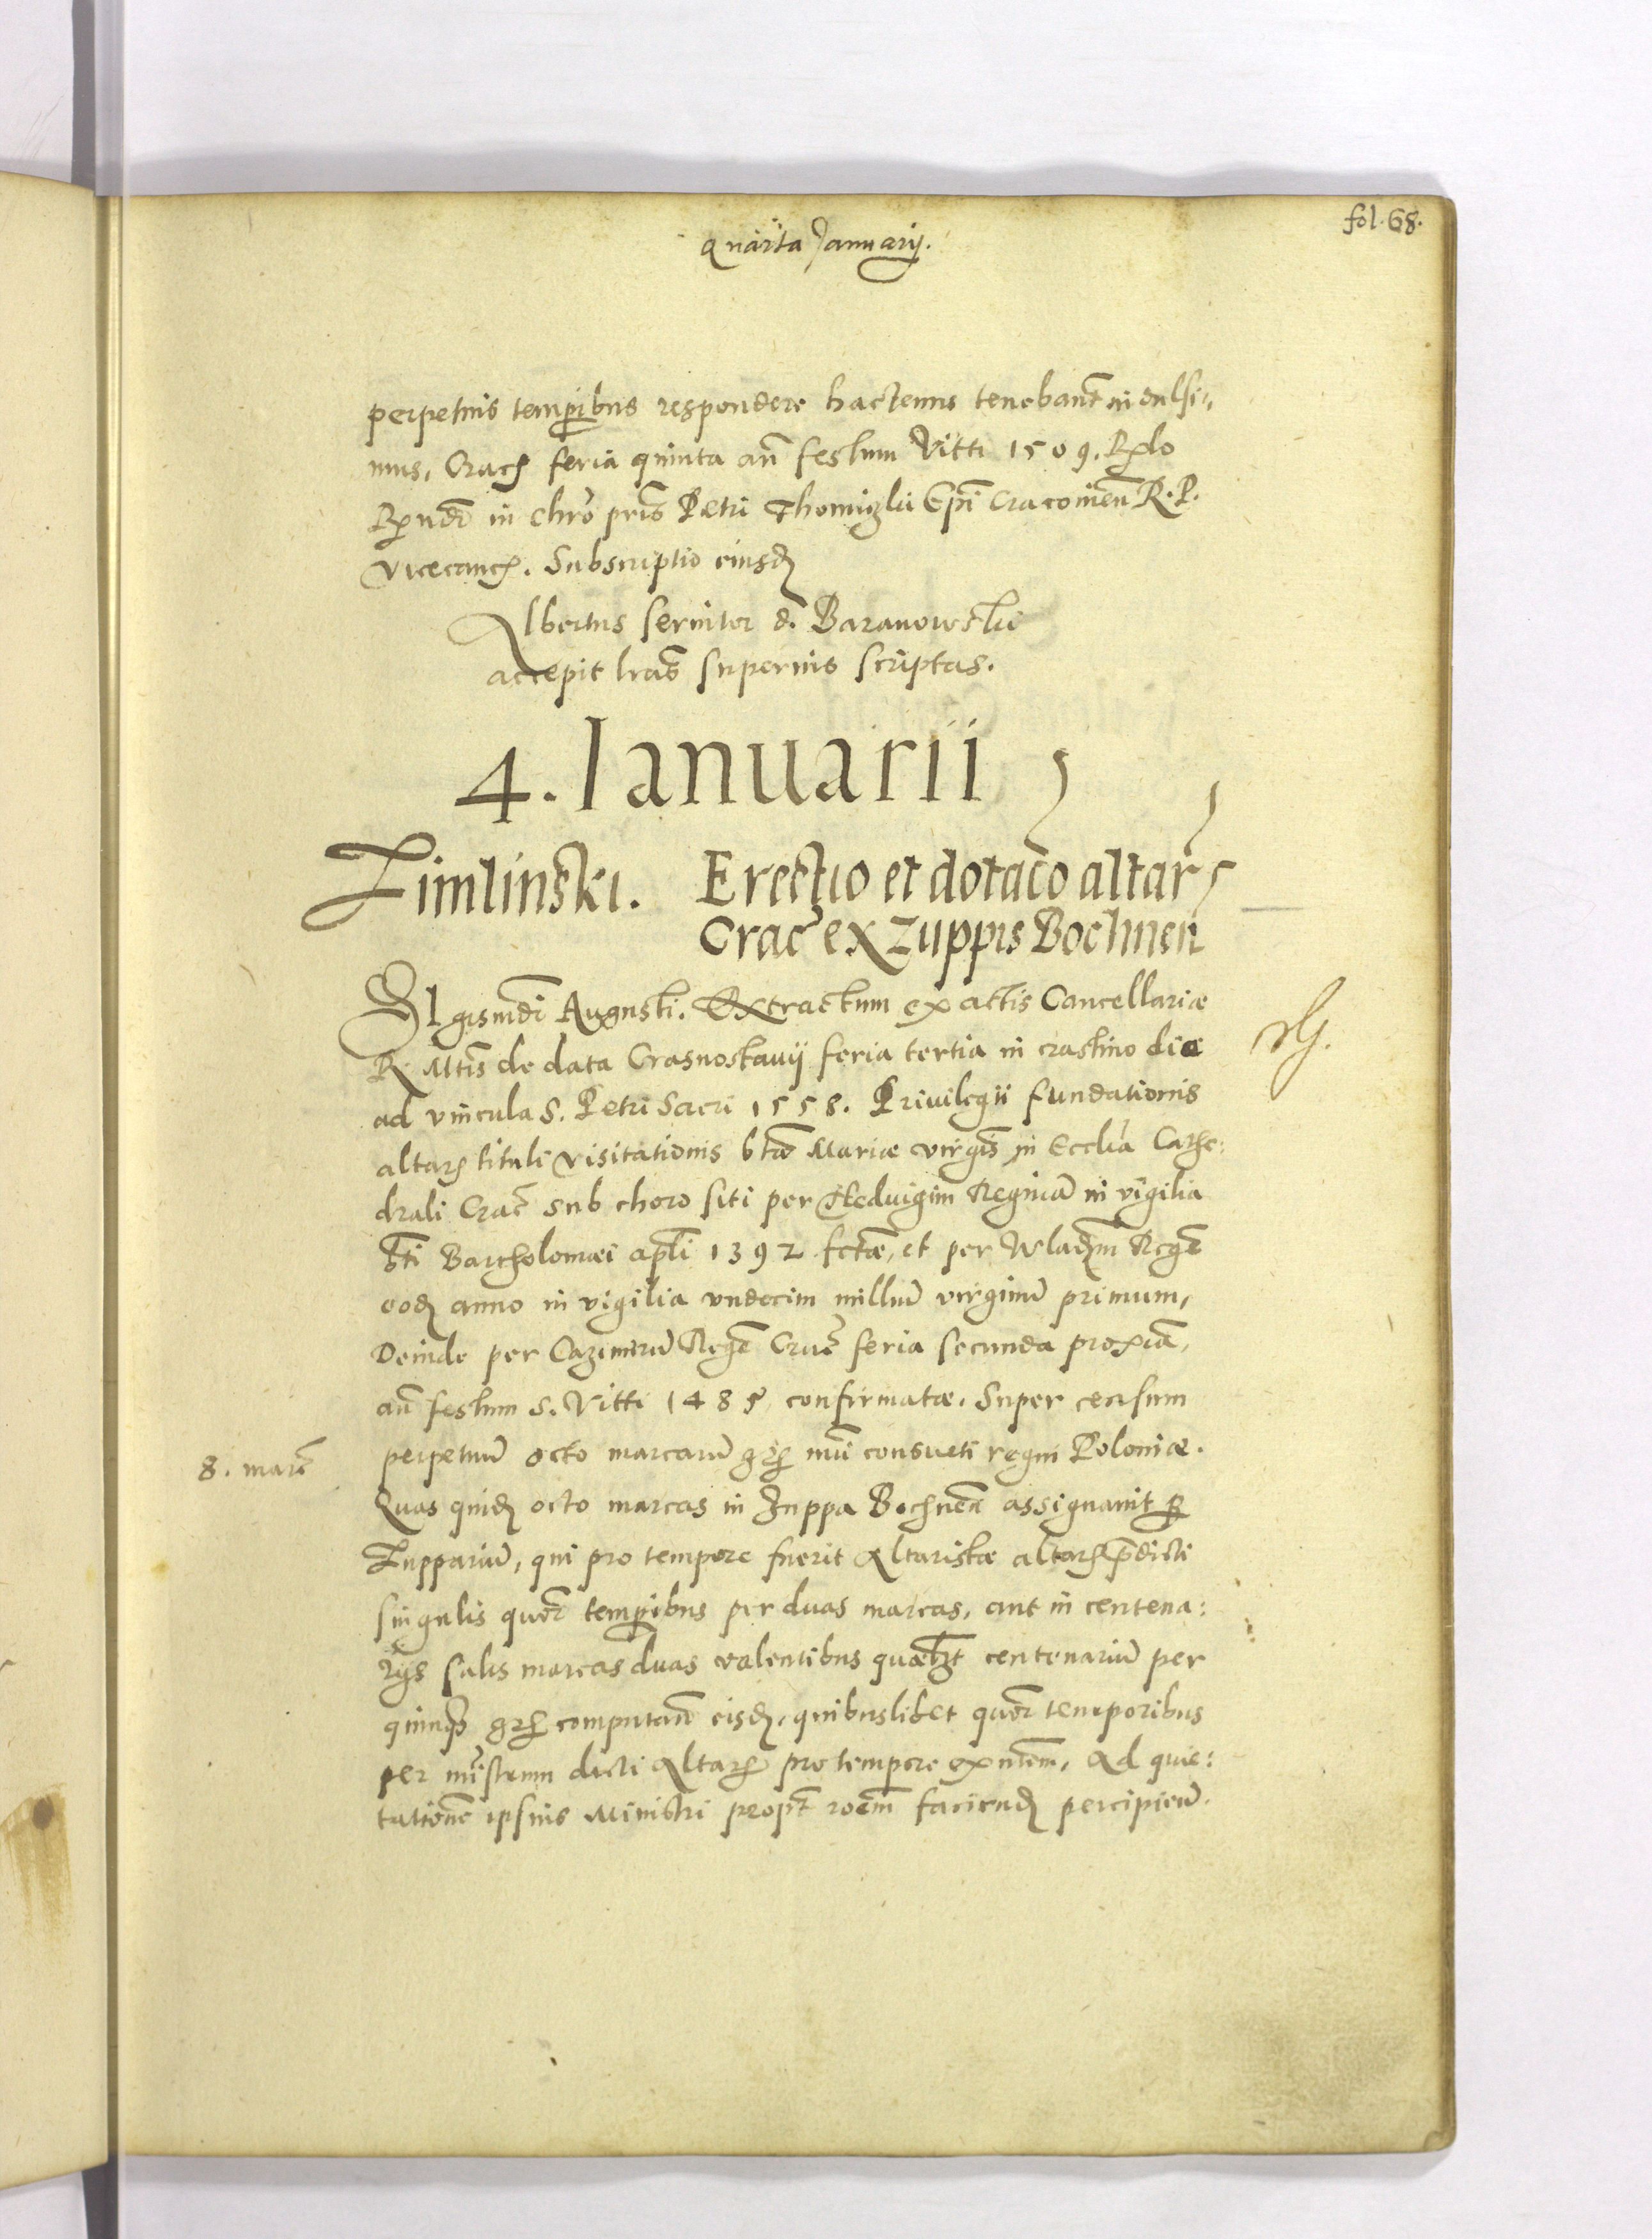 fol. 68.
quarta Januarij.
perpetuis temporibus respondere hactenus tenebant indulsi-
mus, Crac feria quinta an festum Vitti 1509. Rlo
Rndi in chro pris Petri Thomiczki Epi Cracovien R. P.
Vicecanc. Subscriptio eiusd
Albertus servitor d. Baranowski
accepit lras superius scriptas.
4. Ianuarii
Zimlinski. Erectio et dotaco altar
Crac ex Zuppis Bochnen
SIgismdi Augusti. Extractum ex actis Cancellariæ
R Mtis de data Crasnostavij feria tertia in crastino die
ad vincula S. Petri Sacri 1558. Privilegii fundationis
altar tituli visitationis btæ Mariæ virgis in Ecclia Cathe:
drali Crac sub choro siti per Hedvigim Reginã in vigilia
Sti Bartholomæi apli 1392 fctæ, et per Wladm Regẽ
eod anno in vigilia undecim milliũ virginũ primum,
Deinde per Cazimirũ Regẽ Crac feria secunda proxia,
an festum S. Vitti 1485 confirmatæ. Super censum
8. marc
perpetuũ octo marcarũ gr mni consueti regni Poloniæ.
Quas quid octo marcas in Zuppa Bochnen assignavit per
Zuppariũ, qui pro tempore fuerit Altaristæ altar pdicti
singulis quor temporibus per duas marcas, aut in centena:
rijs salis marcas duas valentibus quælzt centenariũ per
quinq gr computan eisd, quibuslibet quor temporibus
per mistrum dicti Altar pro tempore exntem, Ad quie:
tationẽ ipsius Ministri propt roem faciend percipien.